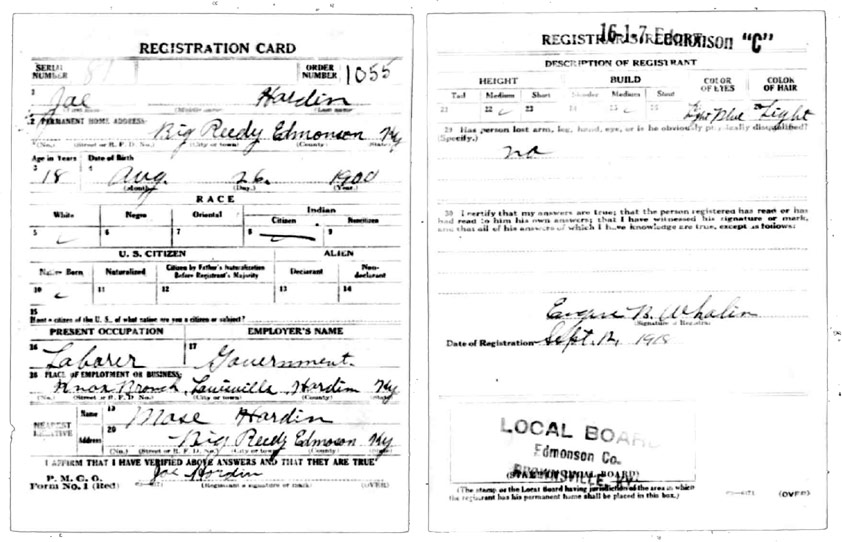 REGISTRATION CARD
SERIAL NUMBER 87 ORDER NUMBER 1055
1 Joe Hardin
(First name) (Middle name) (Last name)
2 PERMANENT HOME ADDRESS:
Big Reedy Edmonson Ky
(No.) (Street or R. F. D. No.) (City or town) (County) (State)
Age in Years Date of Birth
3 18 4 Aug. 26. 1900
(Month.) (Day.) (Year.)
RACE
White Negro Oriental Indian
Citizen Noncitizen
5 6 7 8 9
U. S. CITIZEN ALIEN
Native Born Naturalized Citizen by Father's Naturalization Before Registrant's Majority Declarant Non-declarant
10 11 12 13 14
15
If not a citizen of the U. S., of what nation are you a citizen or subject?
PRESENT OCCUPATION EMPLOYER'S NAME
16 Laborer 17 Government.
18 PLACE OF EMPLOYMENT OR BUSINESS:
Louisville Hardin Ky
(No.) (Street or R. F. D. No.) (City or town) (County) (State)
NEAREST RELATIVE Name 19 Mose Hardin
Address 20 Big Reedy Edmoson Ky
(No.) (Street or R. F. D. No.) (City or town) (County) (State)
I AFFIRM THAT I HAVE VERIFIED ABOVE ANSWERS AND THAT THEY ARE TRUE
P. M. G. O.
Form No. 1 (Red) Joe Hardin
(Registrant's signature or mark) (OVER)
REGISTRAR'S REPORT
16-1-7 Edmonson "C"
DESCRIPTION OF REGISTRANT
HEIGHT BUILD COLOR OF EYES COLOR OF HAIR
Tall Medium Short Slender Medium Stout
21 22 23 24 25 26 Light Blue 28 Light
29 Has person lost arm, leg, hand, eye, or is he obviously physically disqualified?
(Specify.)
no
30 I certify that my answers are true; that the person registered has read or has
had read to him his own answers; that I have witnessed his signature or mark,
and that all of his answers of which I have knowledge are true, except as follows:
Eugene B. Whalin
(Signature of Registrar)
Date of Registration Sept. 12, 1918
LOCAL BOARD
Edmonson Co.
BROWNSVILLE, KY.
(STAMP OF LOCAL BOARD)
(The stamp of the Local Board having jurisdiction of the area in which
the registrant has his permanent home shall be placed in this box.)
(OVER)